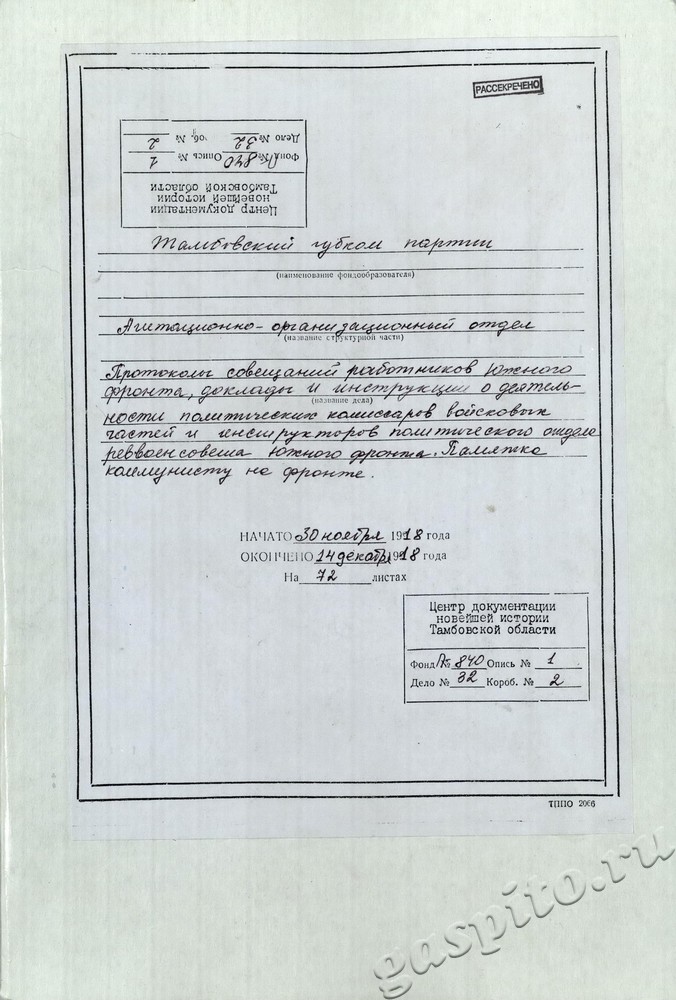 РАССЕКРЕЧЕНО
Центр документации
новейшей истории
Тамбовской области
Фонд № 840 Опись № 1
Дело № 32 об. № 2
Тамбовский губком партии
(наименование фондообразователя)
Агитационно-организационный отдел
(название структурной части)
Протоколы совещаний работников Южного
фронта, доклады и инструкции о деятель-
(название дела)
ности политических комиссаров войсковых
частей и инструкторов политического отдела
реввоенсовета Южного фронта. Памятка
коммунисту на фронте.
НАЧАТО 30 ноября 1918 года
ОКОНЧЕНО 14 декабря 1918 года
На 72 листах
Центр документации
новейшей истории
Тамбовской области
Фонд № 840 Опись № 1
Дело № 32 Короб. № 2
ТППО 2066
gaspito.ru